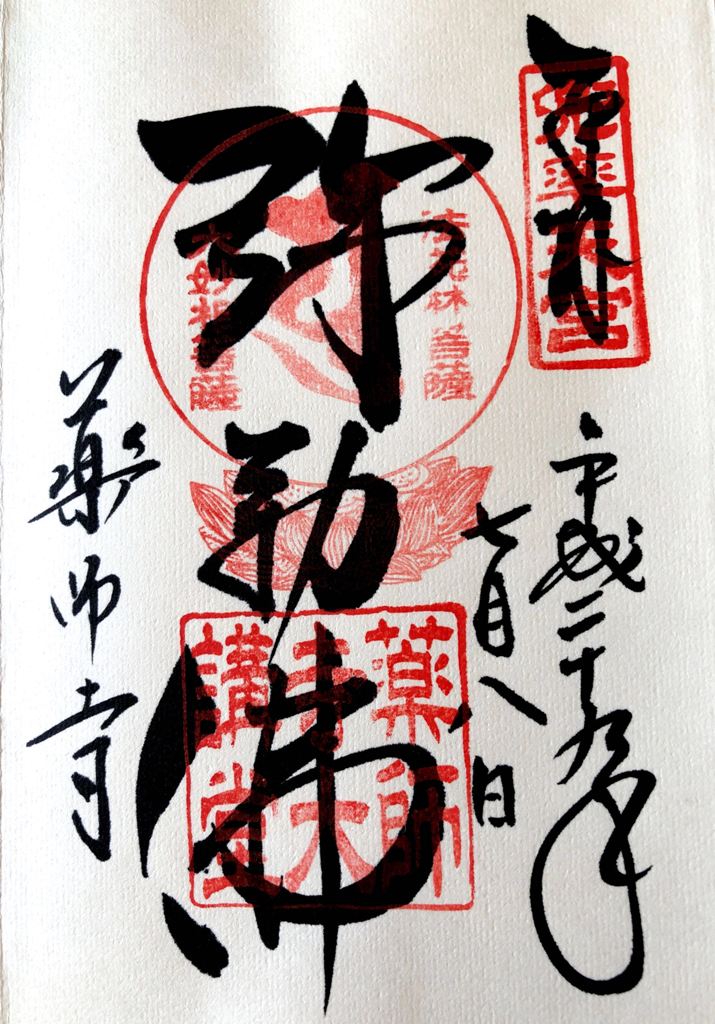 奉拝
兜率天宮
平成二十九年
七月八日
弥勒佛
法苑林菩薩
大妙相菩薩
薬師
寺大
講堂
薬師寺